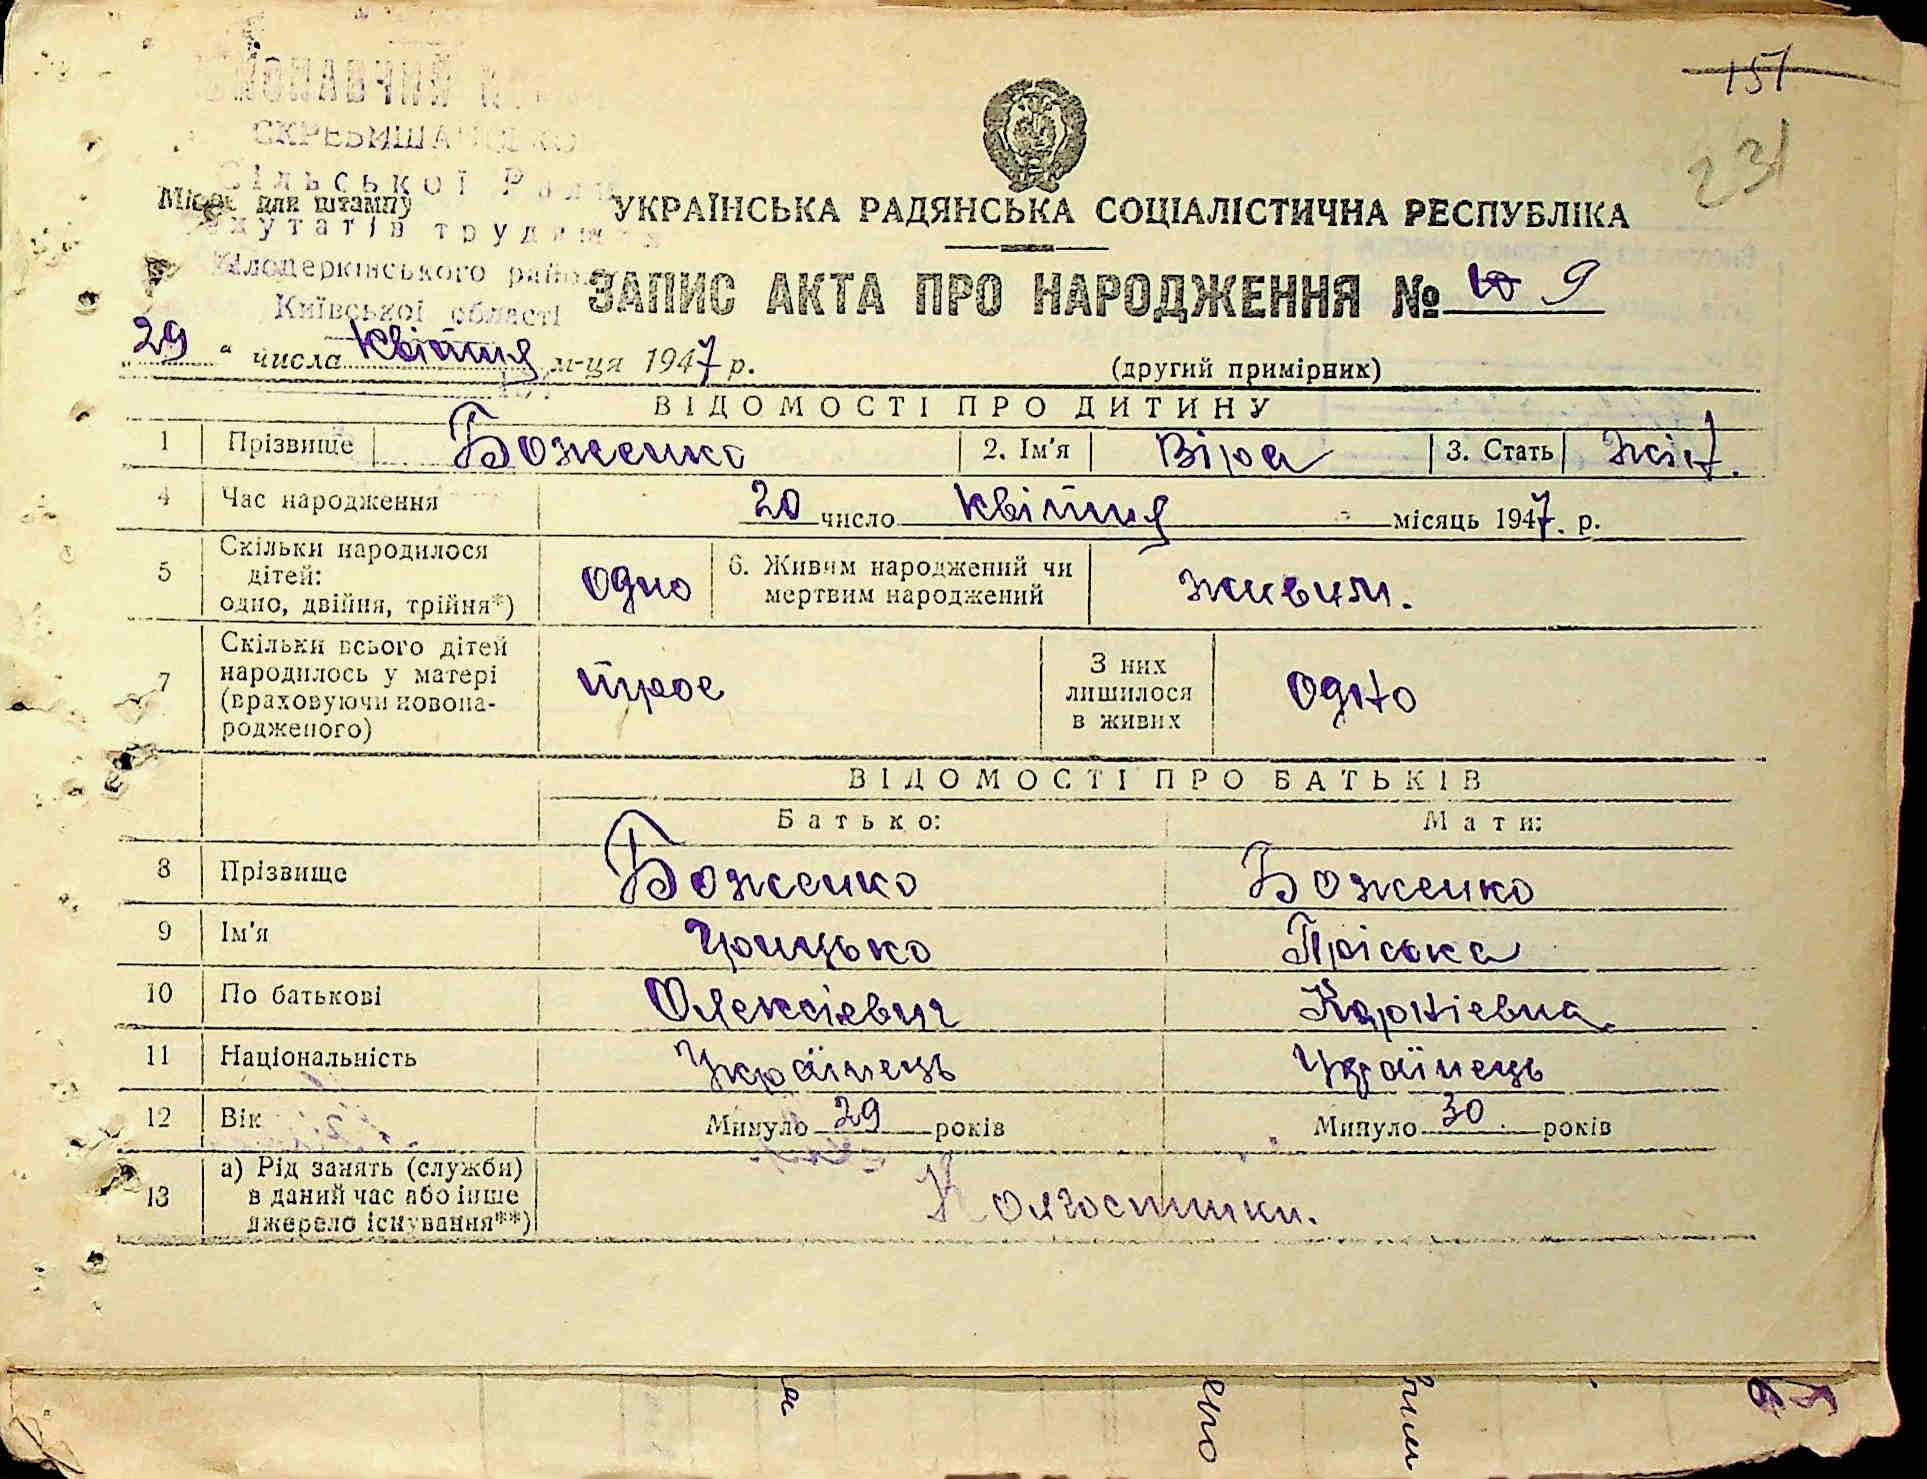 151
231
Виконавчий к
СКРЕБИШАНСЬКО
Сільської Ради
Місце для штампу
депутатів трудящих
УКРАЇНСЬКА РАДЯНСЬКА СОЦІАЛІСТИЧНА РЕСПУБЛІКА
Білоцерківського району
Київської області
ЗАПИС АКТА ПРО НАРОДЖЕННЯ № 10 9
29 " числа квітня м-ця 1947 р.
(другий примірник)
ВІДОМОСТІ ПРО ДИТИНУ
1 Прізвище Боженко 2. Ім'я Віра 3. Стать жін.
4 Час народження 20 число квітня місяць 1947. р.
5 Скільки народилося дітей: одно, двійня, трійня*) одно 6. Живим народжений чи мертвим народжений живим.
7 Скільки всього дітей народилось у матері (враховуючи новонародженого) троє З них лишилося в живих одно
ВІДОМОСТІ ПРО БАТЬКІВ
Батько: Мати:
8 Прізвище Боженко Боженко
9 Ім'я Грицько Пріська
10 По батькові Олексієвич Карпіевна
11 Національність Українець Українець
12 Вік Минуло 29 років Минуло 30 років
13 а) Рід занять (служби) в даний час або інше джерело існування**) Колгоспники.